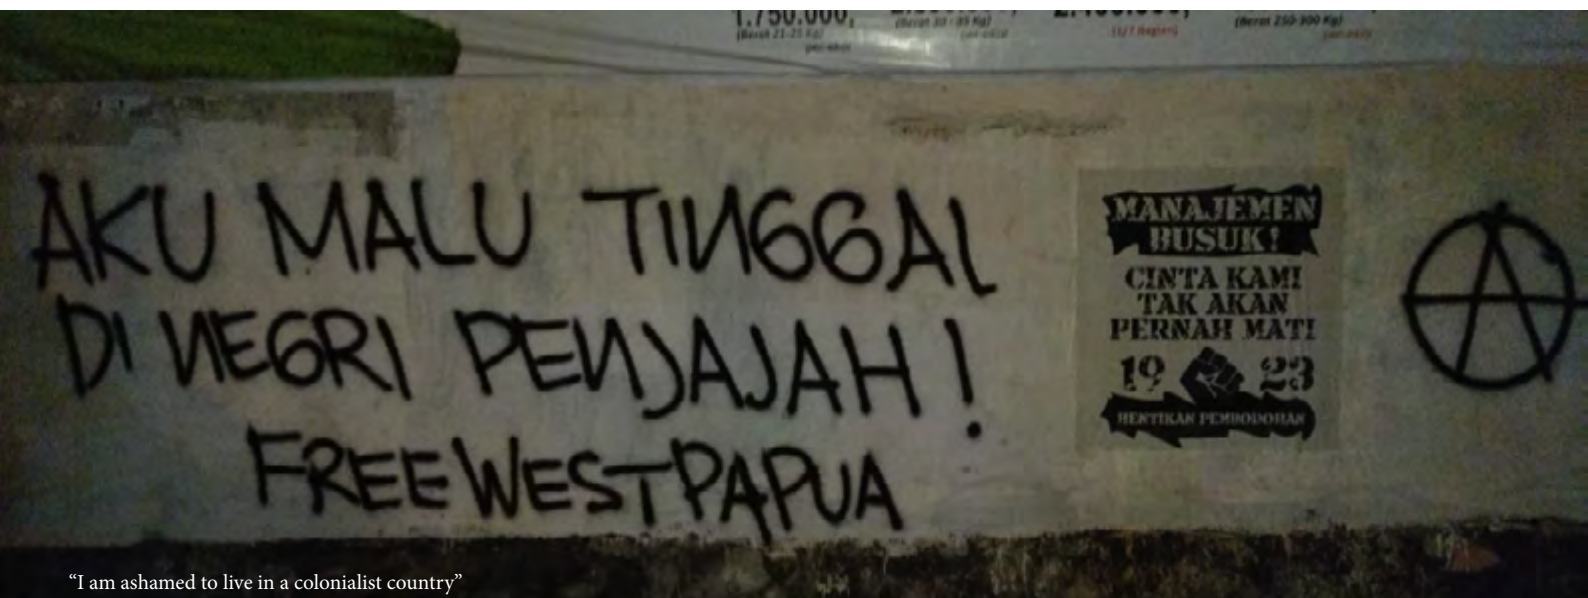 1.750.000,
(Berat 21-25 Kg)
(Berat 250-300 Kg)
(1/7 Bagian)
AKU MALU TINGGAL
DI NEGRI PENJAJAH !
FREE WEST PAPUA
MANAJEMEN
BUSUK!
CINTA KAMI
TAK AKAN
PERNAH MATI
19 23
HENTIKAN PEMBODOHAN
A
“I am ashamed to live in a colonialist country”